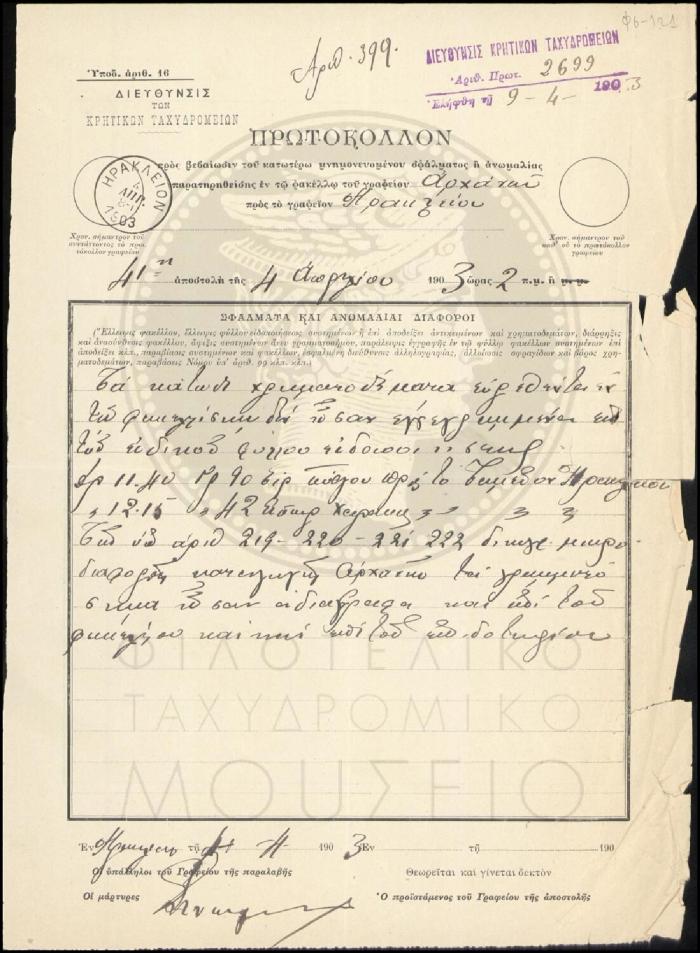 Φ6-121
Ὑποδ. ἀριθ. 16
Ἀριθ. 399.
ΔΙΕΥΘΥΝΣΙΣ ΚΡΗΤΙΚΩΝ ΤΑΧΥΔΡΟΜΕΙΩΝ
Ἀριθ. Πρωτ. 2699
9-4- 1903
ΔΙΕΥΘΥΝΣΙΣ
ΤΩΝ
ΚΡΗΤΙΚΩΝ ΤΑΧΥΔΡΟΜΕΙΩΝ
ΠΡΩΤΟΚΟΛΛΟΝ
πρὸς βεβαίωσιν τοῦ κατωτέρω μνημονευομένου σφάλματος ἢ ἀνωμαλίας
παρατηρηθείσης ἐν τῷ φακέλλῳ τοῦ γραφείου Ἀρχανῶν
πρὸς τὸ γραφεῖον Ἡρακλείου
ΗΡΑΚΛΕΙΟΝ
4
ΑΠΡ.
1903
Χρον. σήμαντρον τοῦ
συντάττοντος τὸ πρω
τόκολλον γραφείου
Χρον. σήμαντρον τοῦ
καθ' οὗ τὸ πρωτόκολλον
γραφείου
41η ἀποστολὴ τῆς 4 Ἀπριλίου 1903 ὥρας 2 π.μ. ἢ μ.μ.
ΣΦΑΛΜΑΤΑ ΚΑΙ ΑΝΩΜΑΛΙΑΙ ΔΙΑΦΟΡΟΙ
(Ἔλλειψις φακέλλου, ἔλλειψις φύλλου εἰδοποιήσεως, συστημένων ἢ ἐπὶ ἀποδείξει ἀντικειμένων καὶ χρηματοδεμάτων, διάρρηξις
καὶ ἀνασύνθεσις φακέλλου, ἄφιξις συστημένων ἄνευ γραμματοσήμου, παράλειψις ἐγγραφῆς ἐν τῷ φύλλῳ φακέλλων συστημένων ἐπὶ
ἀποδείξει κλπ., παραβίασις συστημένων καὶ φακέλλων, ἐσφαλμένη διεύθυνσις ἀλληλογραφίας, ἀλλοίωσις σφραγίδων καὶ βάρος χρη-
ματοδεμάτων, παραβάσεις Νόμου ὑπ' ἀριθ. 99 κλπ. κλπ.)
Τὰ κάτωθι χρηματοδέματα εὑρεθέντα ἐν
τῷ δὲν ἦσαν ἐγγεγραμμένα ἐπὶ
τοῦ εἰδικοῦ φύλλου
Δρ 11.40 γρ 90 πρὸς τὸ Ταμεῖον Ἡρακλείου
" 12.15 " 42 " " "
Τῶν ὑπ' ἀριθ 219-220-221 222
καταγωγῆς Ἀρχανῶν τὰ γραμματό
σημα ἦσαν καὶ ἐπὶ τοῦ
καὶ ἐπὶ τοῦ
ΦΙΛΟΤΕΛΙΚΟ
ΤΑΧΥΔΡΟΜΙΚΟ
ΜΟΥΣΕΙΟ
Ἐν Ἡρακλείῳ τῇ 4 1903 Ἐν τῇ 190
Οἱ ὑπάλληλοι τοῦ Γραφείου τῆς παραλαβῆς
Θεωρεῖται καὶ γίνεται δεκτὸν
Οἱ μάρτυρες
Ὁ προϊστάμενος τοῦ Γραφείου τῆς ἀποστολῆς